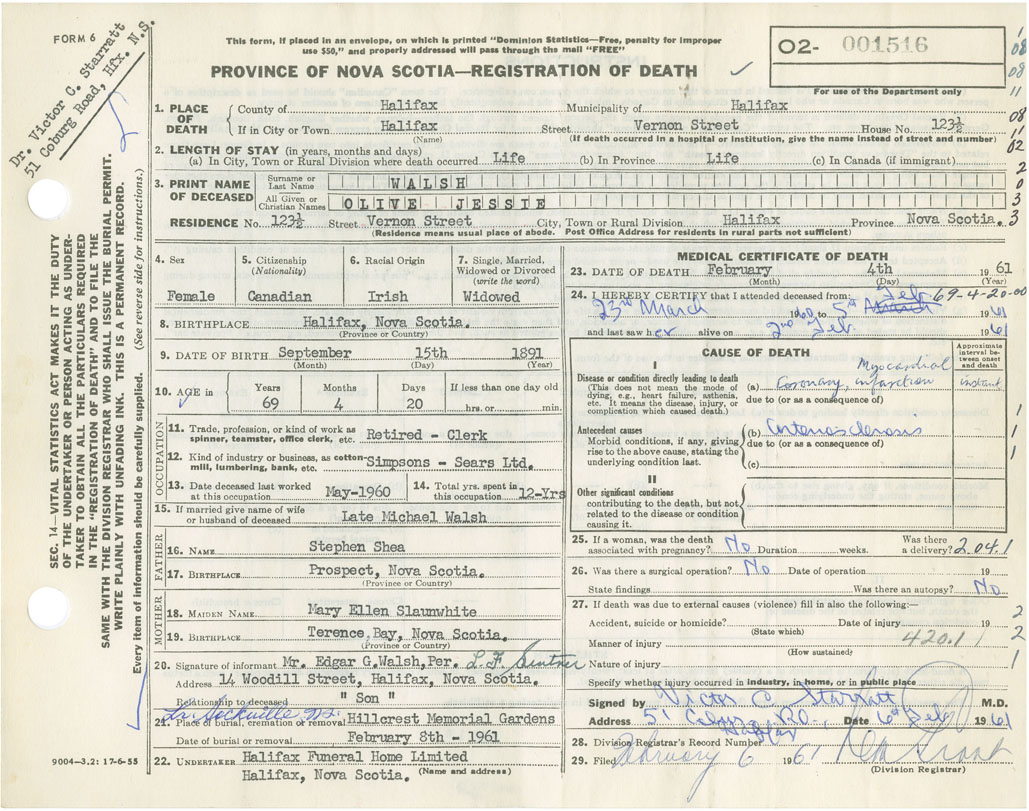 FORM 6
Dr. Victor C. Starratt
51 Coburg Road, Hfx. N.S.
This form, if placed in an envelope, on which is printed "Dominion Statistics—Free, penalty for improper
use $50," and properly addressed will pass through the mail "FREE"
PROVINCE OF NOVA SCOTIA—REGISTRATION OF DEATH
O2- 001516
For use of the Department only
1. PLACE OF DEATH
County of Halifax Municipality of Halifax
If in City or Town Halifax Street Vernon Street House No. 123½
(Name) (If death occurred in a hospital or institution, give the name instead of street and number)
2. LENGTH OF STAY (in years, months and days)
(a) In City, Town or Rural Division where death occurred Life (b) In Province Life (c) In Canada (if immigrant)
3. PRINT NAME OF DECEASED
Surname or Last Name WALSH
All Given or Christian Names OLIVE JESSIE
RESIDENCE No. 123½ Street Vernon Street City, Town or Rural Division Halifax Province Nova Scotia.
(Residence means usual place of abode. Post Office Address for residents in rural parts not sufficient)
1
08
08
11
08
11
02
2
0
3
3
SEC. 14 VITAL STATISTICS ACT MAKES IT THE DUTY
OF THE UNDERTAKER OR PERSON ACTING AS UNDER-
TAKER TO OBTAIN ALL THE PARTICULARS REQUIRED
IN THE "REGISTRATION OF DEATH" AND TO FILE THE
SAME WITH THE DIVISION REGISTRAR WHO SHALL ISSUE THE BURIAL PERMIT.
WRITE PLAINLY WITH UNFADING INK. THIS IS A PERMANENT RECORD.
Every item of information should be carefully supplied. (See reverse side for instructions.)
4. Sex
Female
5. Citizenship
(Nationality)
Canadian
6. Racial Origin
Irish
7. Single, Married,
Widowed or Divorced
(write the word)
Widowed
8. BIRTHPLACE Halifax, Nova Scotia.
(Province or Country)
9. DATE OF BIRTH September 15th 1891
(Month) (Day) (Year)
10. AGE in Years Months Days If less than one day old
69 4 20 hrs. or min.
OCCUPATION
11. Trade, profession, or kind of work as
spinner, teamster, office clerk, etc. Retired - Clerk
12. Kind of industry or business, as cotton-
mill, lumbering, bank, etc. Simpsons - Sears Ltd.
13. Date deceased last worked
at this occupation May-1960
14. Total yrs. spent in
this occupation 12-Yrs
15. If married give name of wife
or husband of deceased Late Michael Walsh
FATHER
16. NAME Stephen Shea
17. BIRTHPLACE Prospect, Nova Scotia.
(Province or Country)
MOTHER
18. MAIDEN NAME Mary Ellen Slaunwhite
19. BIRTHPLACE Terence Bay, Nova Scotia.
(Province or Country)
20. Signature of informant Mr. Edgar G. Walsh, Per. L.F.
Address 14 Woodill Street, Halifax, Nova Scotia.
Relationship to deceased " Son "
Lr. Sackville N.S.
21. Place of burial, cremation or removal Hillcrest Memorial Gardens
Date of burial or removal February 8th - 1961
22. UNDERTAKER Halifax Funeral Home Limited
Halifax, Nova Scotia. (Name and address)
9004—3.2: 17-6-55
MEDICAL CERTIFICATE OF DEATH
23. DATE OF DEATH February 4th 1961
(Month) (Day) (Year)
24. I HEREBY CERTIFY that I attended deceased from: Feb 69-4-20-00
23rd March 1960 to 5th March 1961
and last saw her alive on 2nd Feb. 1961
CAUSE OF DEATH
Approximate
interval be-
tween onset
and death
I
Disease or condition directly leading to death
(This does not mean the mode of
dying, e.g., heart failure, asthenia,
etc. It means the disease, injury, or
complication which caused death.)
Myocardial
(a) Coronary, infarction instant
due to (or as a consequence of)
Antecedent causes
Morbid conditions, if any, giving
rise to the above cause, stating the
underlying condition last.
(b) Arteriosclerosis
due to (or as a consequence of)
(c)
II
Other significant conditions
contributing to the death, but not
related to the disease or condition
causing it.
1
1
1
25. If a woman, was the death
associated with pregnancy? No Duration weeks. Was there
a delivery? 2.04.1
26. Was there a surgical operation? No Date of operation 19
State findings Was there an autopsy? No
27. If death was due to external causes (violence) fill in also the following:—
Accident, suicide or homicide? Date of injury 19
(State which)
Manner of injury 420.1
(How sustained)
Nature of injury
2
2
1
Specify whether injury occurred in industry, in home, or in public place
Signed by Victor C. Starratt M.D.
Address 51 Coburg RD. Halifax Date 6th Feb 1961
28. Division Registrar's Record Number
29. Filed February 6 1961
(Division Registrar)